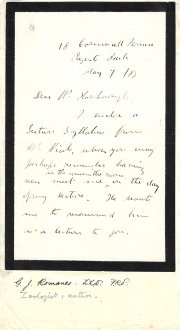 18 Cornwall Terrace
Regent's Park
May 7 /83
Dear Mr
I enclose a
Lecture Syllabus from
Mr whom you may
perhaps remember having
in the committee room
seen me on the day
of my lecture. He wants
me to recommend him
as a lecturer to you.
G. J. Romanes. LLD. FRS.
Zoologist & author.